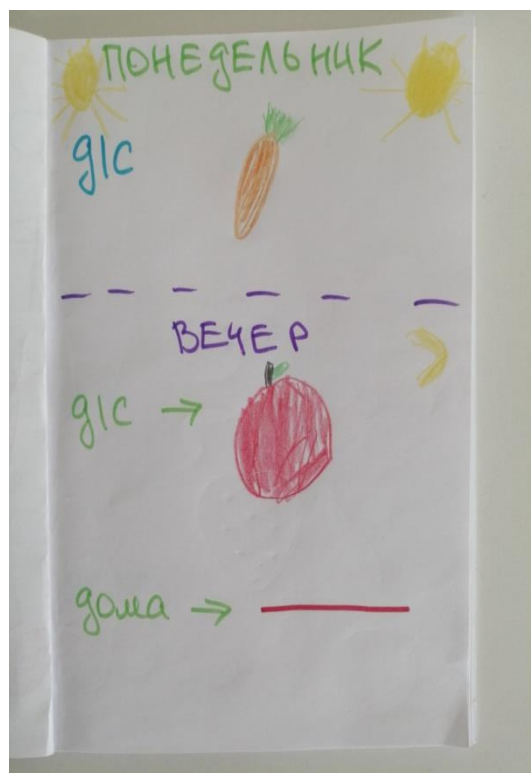 ПОНЕДЕЛЬНИК
д/с
ВЕЧЕР
д/с →
дома →